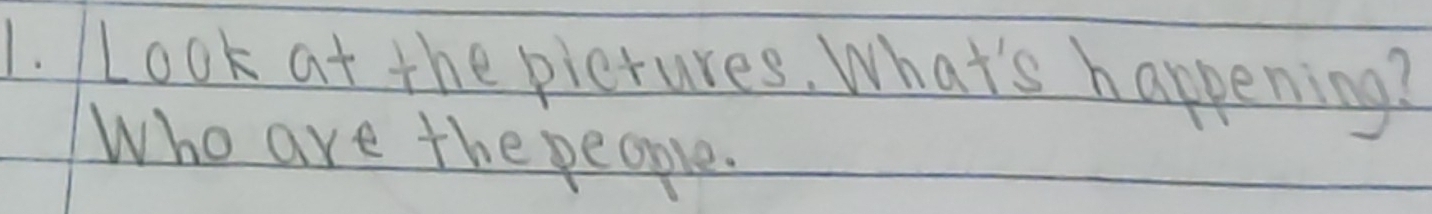 1. Look at the pictures. What's happening?
Who are the people.